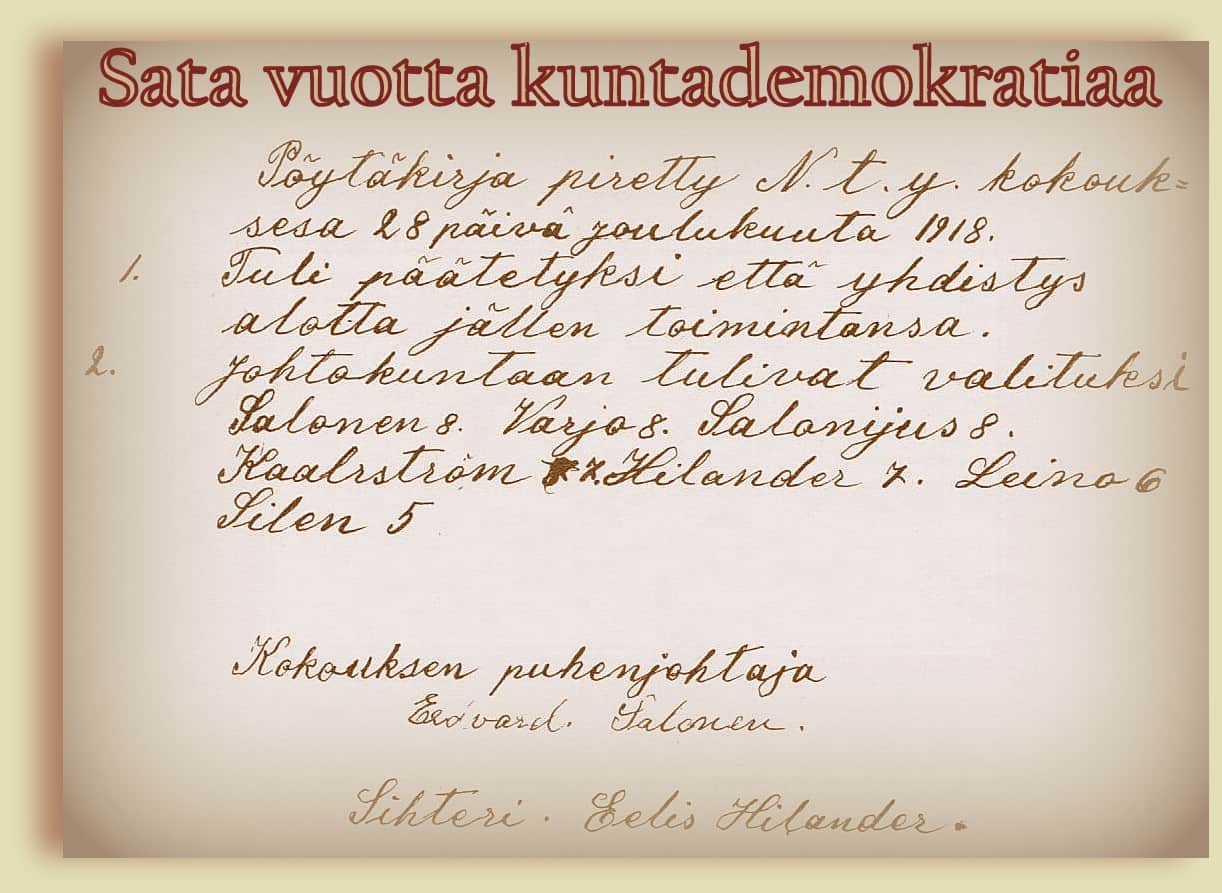 Sata vuotta kuntademokratiaa
Pöytäkirja piretty N. t. y. kokouk=
sesa 28 päivä joulukuuta 1918.
1. Tuli päätetyksi että yhdistys
alotta jällen toimintansa.
2. Johtokuntaan tulivat valituksi
Salonen 8. Varjo 8. Salonijus 8.
Kaalrström 7. Hilander 7. Leino 6
Silen 5
Kokouksen puhenjohtaja
Edvard. Salonen.
Sihteri. Eelis Hilander.